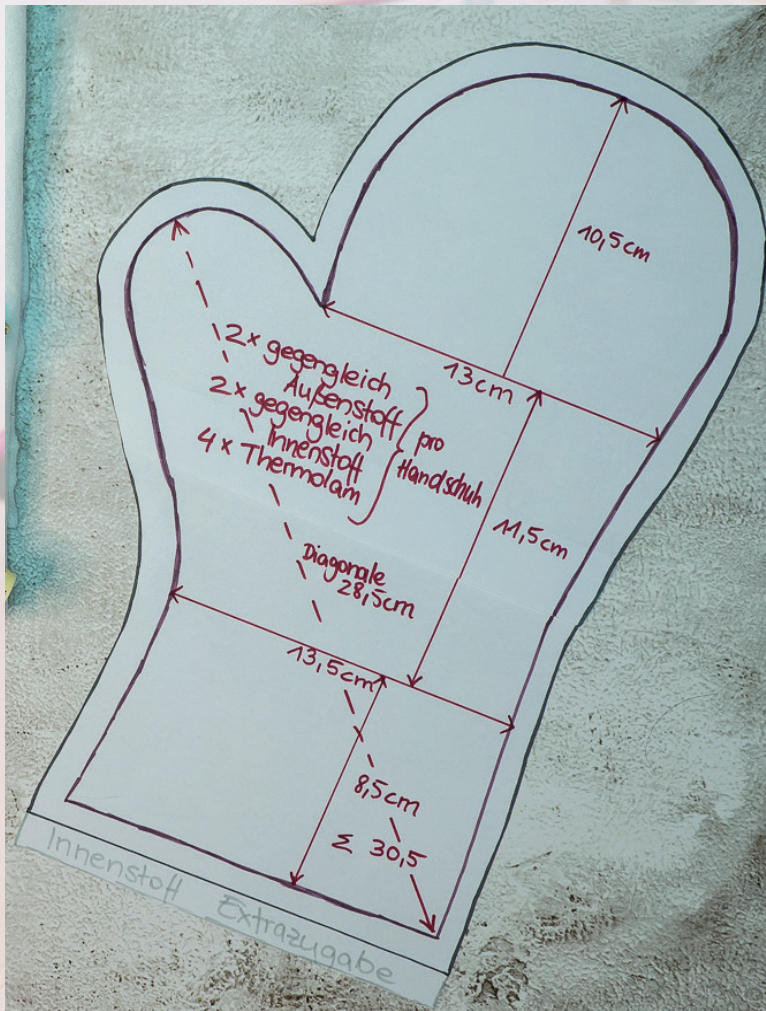 10,5cm
13cm
2x gegengleich
Außenstoff
2x gegengleich
Innenstoff
4x Thermolam
pro
Handschuh
11,5cm
Diagonale
28,5cm
13,5cm
8,5cm
Σ 30,5
Innenstoff Extrazugabe